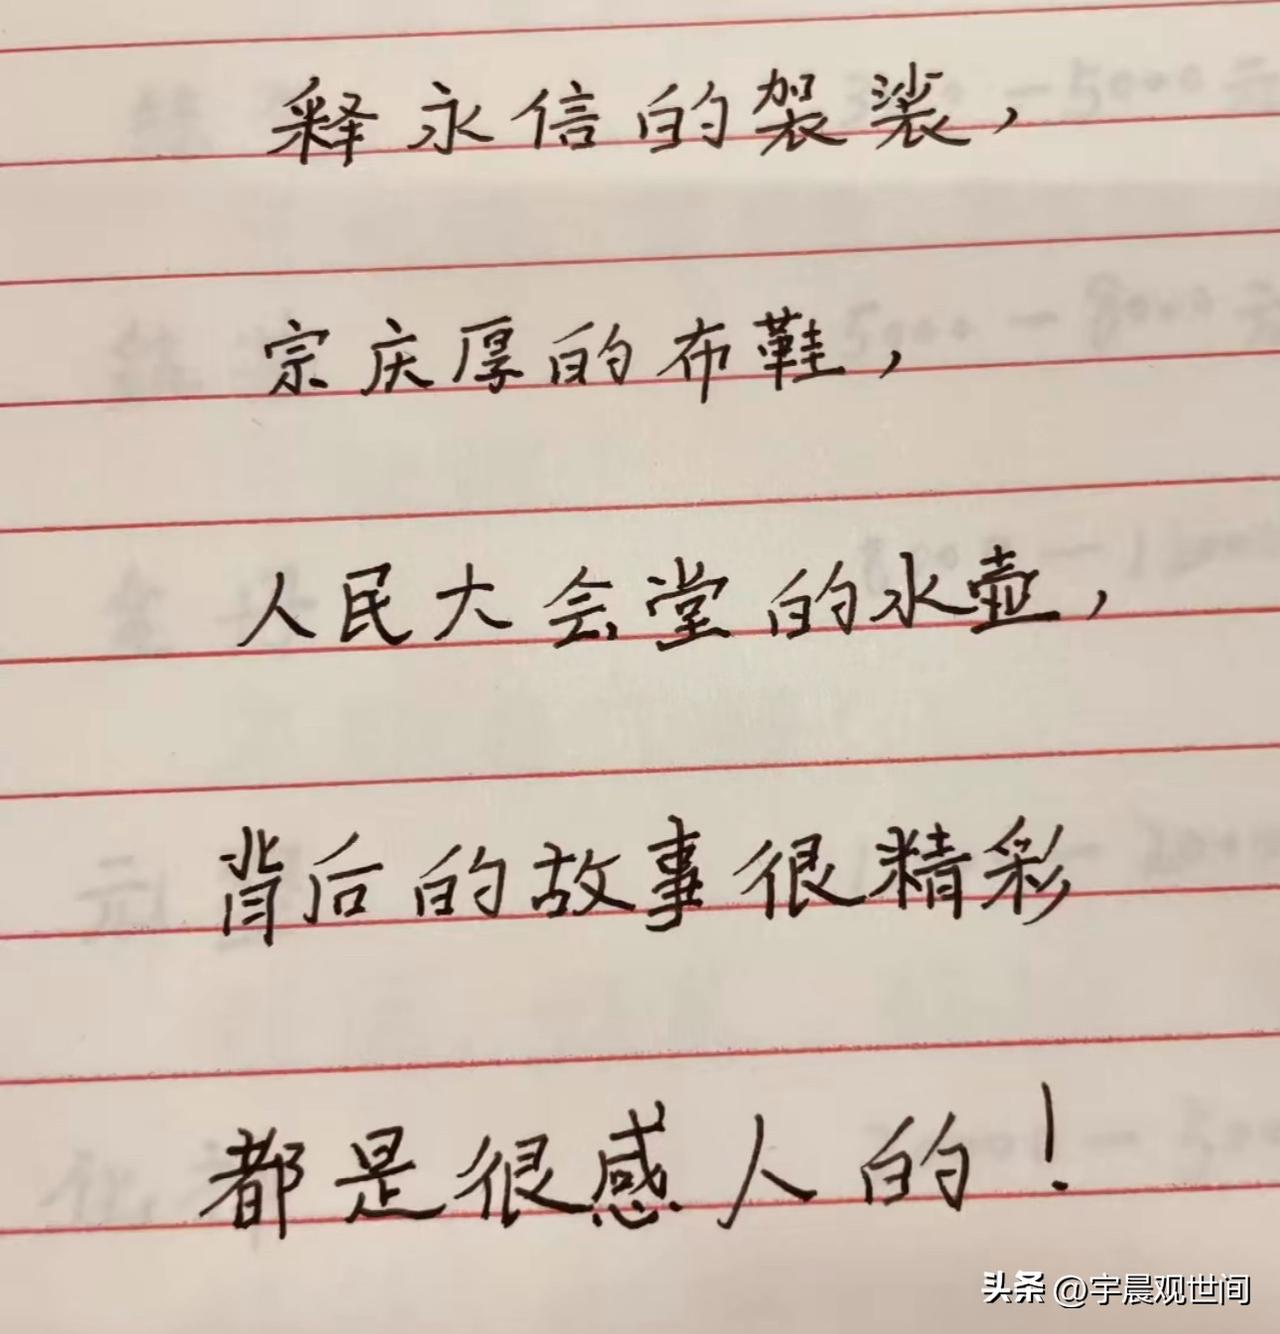 释永信的袈裟，
宗庆厚的布鞋，
人民大会堂的水壶，
背后的故事很精彩
都是很感人的！
头条 @宇晨观世间